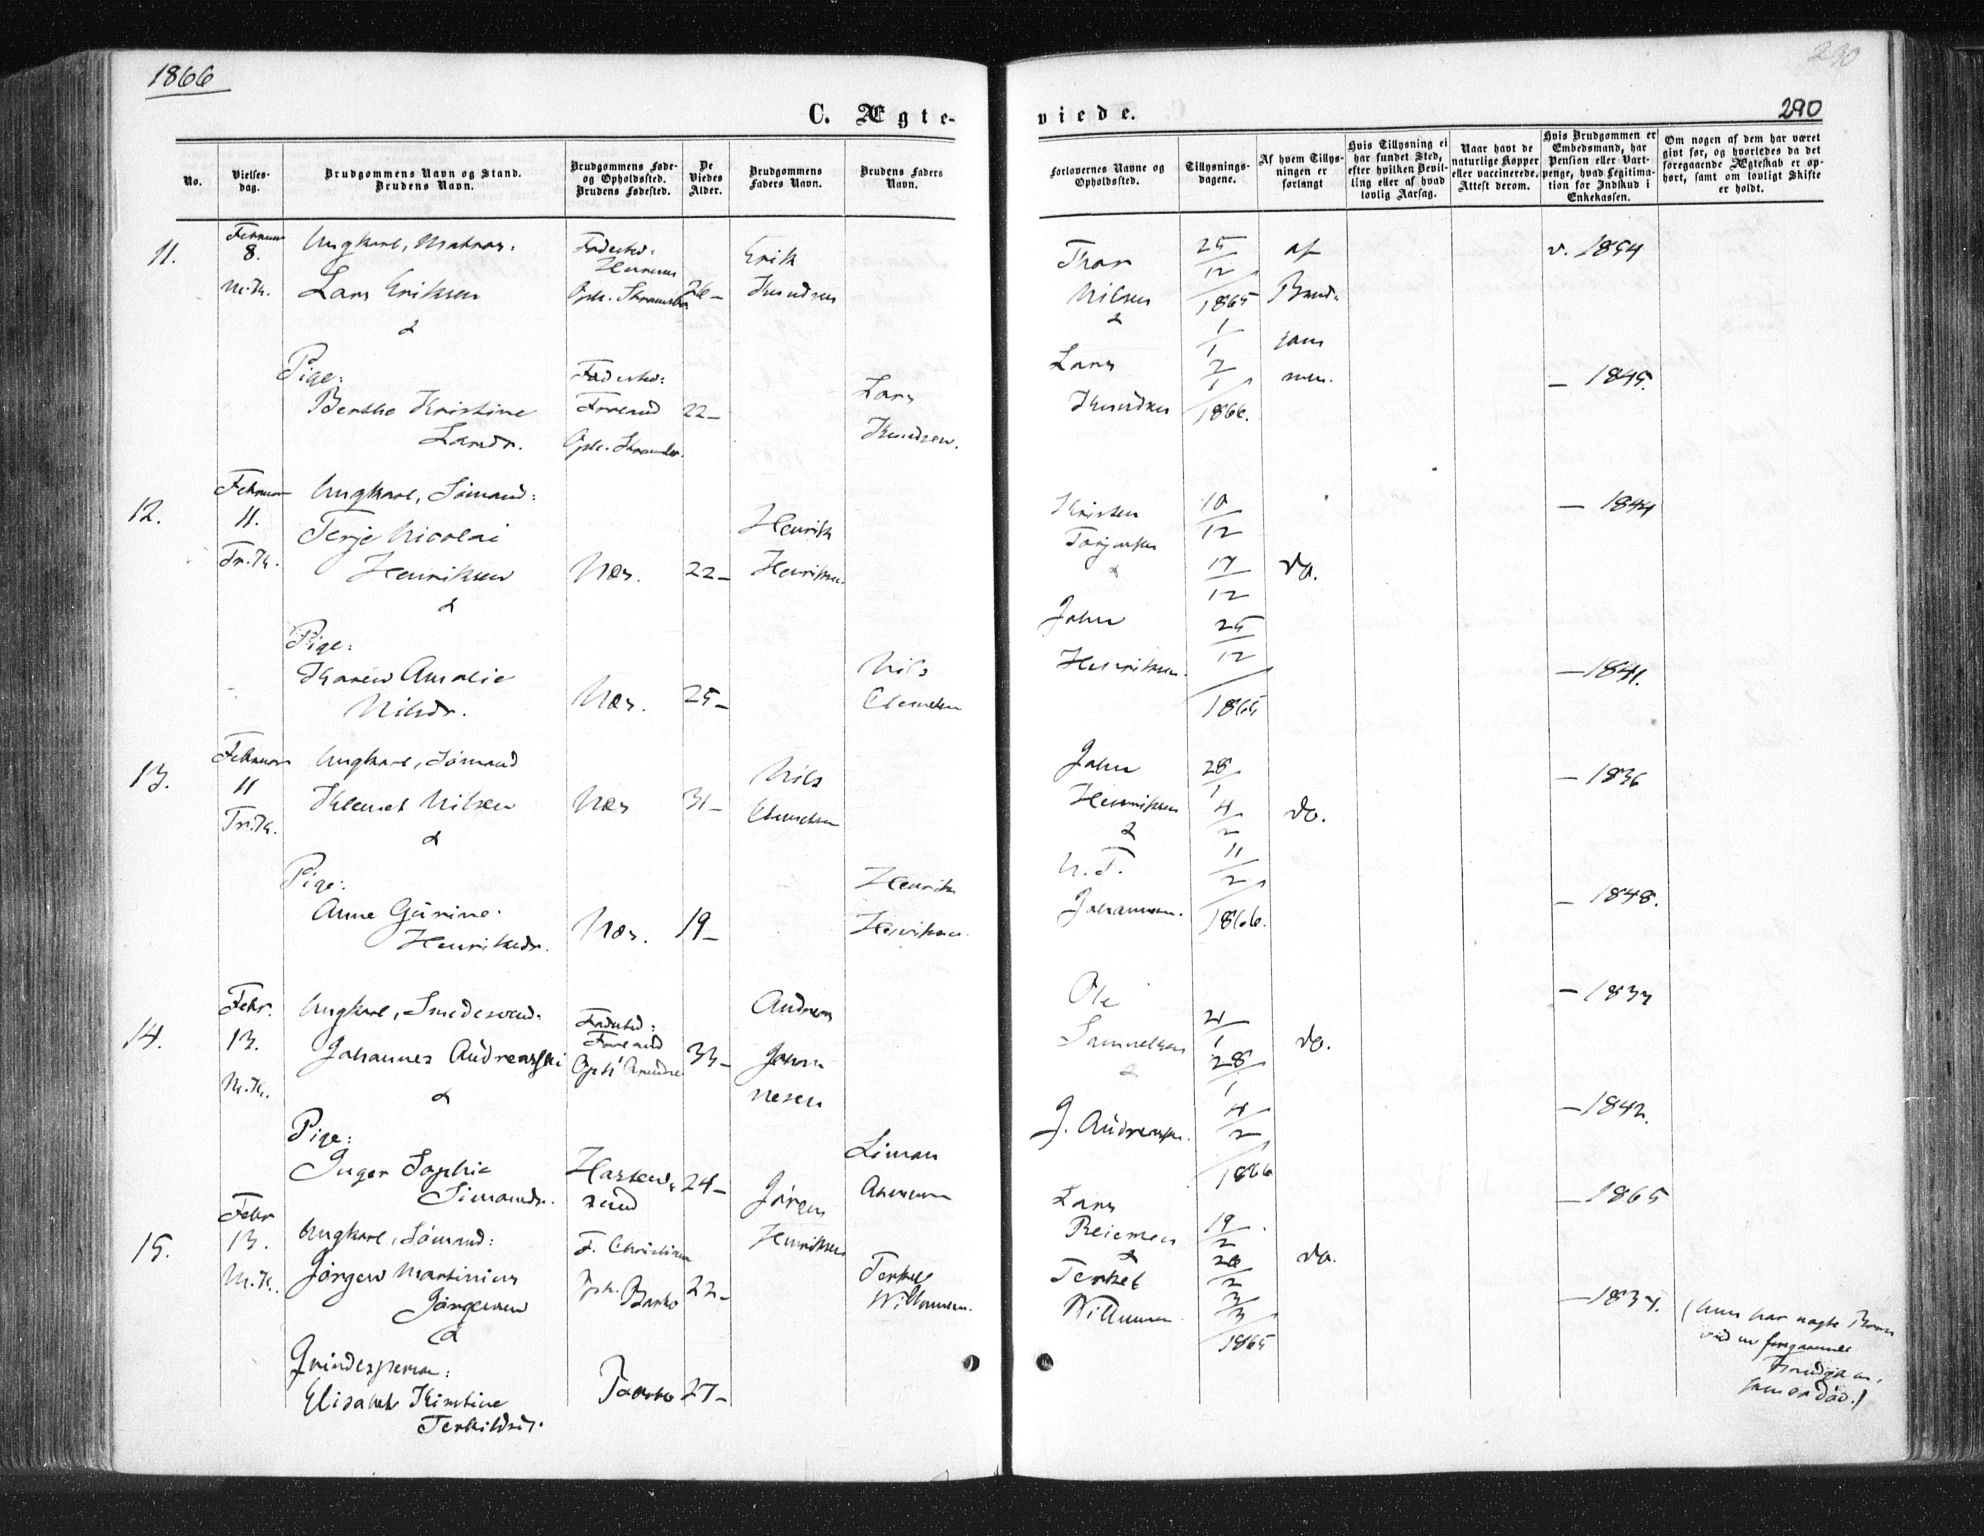 1866
C. Ægte-
No.
Vielses-
dag.
Brudgommens Navn og Stand.
Brudens Navn.
Brudgommens Føde-
og Opholdssted.
Brudens Fødested.
De
Viedes
Alder.
Brudgommens
Faders Navn.
Brudens Faders
Navn.
11.
Februar
8.
Ungkarl, Matros:
Fødested:
Erik
M.K.
Lars Eriksen
26-
Knudsen
&
Pige:
Fødested:
Lars
Berthe Kristine
Froland
22-
Larsdr.
Knudsen.
12.
Februar
11.
Ungkarl, Sömand:
Terje Nicolai
Henrik
Tr.K.
Henriksen
Næs.
22-
Henriksen.
&
Pige:
Karen Amalie
Nils
Nilsdr.
Næs.
25-
Clemetsen
13.
Februar
11
Ungkarl, Sömand
Nils
Tr.K.
Klemet Nilsen
Næs
31-
Clemetsen
&
Pige:
Henrik
Anne Gürine
Henriksdr.
Næs.
19-
Henriksen.
14.
Febr.
13.
Ungkarl, Smedesvend.
Andreas
Fødested:
Froland
M.K.
Johannes Andreassen
33-
Johan-
nesen
&
Pige:
Simon
Inger Sophie
Simonsdr.
24-
15.
Febr
13.
Ungkarl, Sömand:
Jörgen
Henriksen
M.K.
Jörgen Martinius
Jörgensen
22-
Terkel
Willumsen.
&
Qvindesperson:
Elisabet Kirstine
27-
Terkildsd.
290
viede.
290
Forlovernes Navne og
Opholdssted.
Tillysnings-
dagene.
Af hvem Tillys-
ningen er
forlangt
Hvis Tillysning ei
har fundet Sted,
efter hvilken Bevil-
ling eller af hvad
lovlig Aarsag.
Naar havt de
naturlige Kopper
eller vaccinerede.
Attest derom.
Hvis Brudgommen er
Embedsmand, har
Pension eller Vart-
penge, hvad Legitima-
tion for Indskud i
Enkekassen.
Om nogen af dem har været
givt før, og hvorledes da det
foregaaende Ægteskab er op-
hørt, samt om lovligt Skifte
er holdt.
Thor
25/12
af
v. 1854
Nilsen
1865
Brud-
&
1/1
gom
Lars
7/1
men.
- 1845.
Knudsen
1866.
Kristen
10/12
- 1844
Torjersen
17/12
do.
John
25/12
Henriksen.
1865
- 1841.
John
28/1
- 1836
Henriksen
4/2
do.
&
N. T.
11/2
Johannesen.
1866.
- 1848.
Ole
- 1833
Samuelsen
21/1
do.
&
28/1
J. Andreassen.
4/2
- 1842.
1866
Lars
- 1865
Reiersen
19/2
&
26/2
do.
Terkel
3/3
Willumsen
1865
- 1837.
(hun har
ved en foregaaende
som er död.)